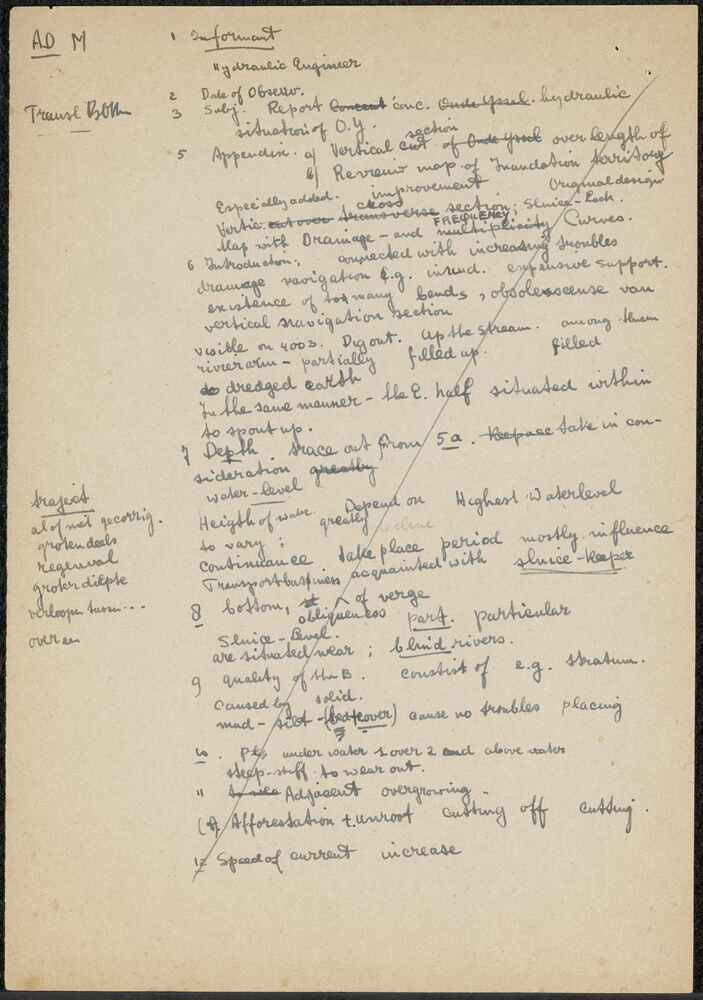 AD M
1 Informant
Hydraulic Engineer
2 Date of Observ.
Transl
3 Subj. Report conc. Oude Yssel. hydraulic
situation of O.Y.
section
5 Appendix. a) Vertical cut of Oude Yssel over length of
b) Review map of Inundation territory
Especially added. improvement Original design
cross
Vertic. cut over transverse section; Sluice-Lock.
FREQUENCY
Map with Drainage - and multiplicity Curves.
6 Introduction; connected with increasing troubles
drainage navigation e.g. inund. expensive support.
existence of too many bends, obsolescense van
vertical navigation section
visible on 4003. Dug out. Up the stream. among them
riverarm - partially filled up. filled
dredged earth
In the same manner - the E. half situated within
to spout up.
7 Depth. trace out from 5a. take in con-
sideration greatly
water-level
traject
Heigth of water. Depend on Highest Waterlevel
al of niet gecorrig.
to vary; greatly decline
grotendeels
continuance take place period mostly influence
regenval
Transportbussiness acquainted with sluice-keeper
groter diepte
8 bottom, of verge
verloopen tussen...
obliqueness part. particular
over en
Sluice-Level.
are situated near; blind rivers.
9 quality of the B. consist of e.g. stratum.
Caused by solid.
mud - silt - (bed+cover) cause no troubles placing
10. under water 1 over 2 and above water
steep-stiff to wear out.
11 Adjacent overgrowing.
Afforestation + unroot cutting off cutting.
12 Speed of current increase